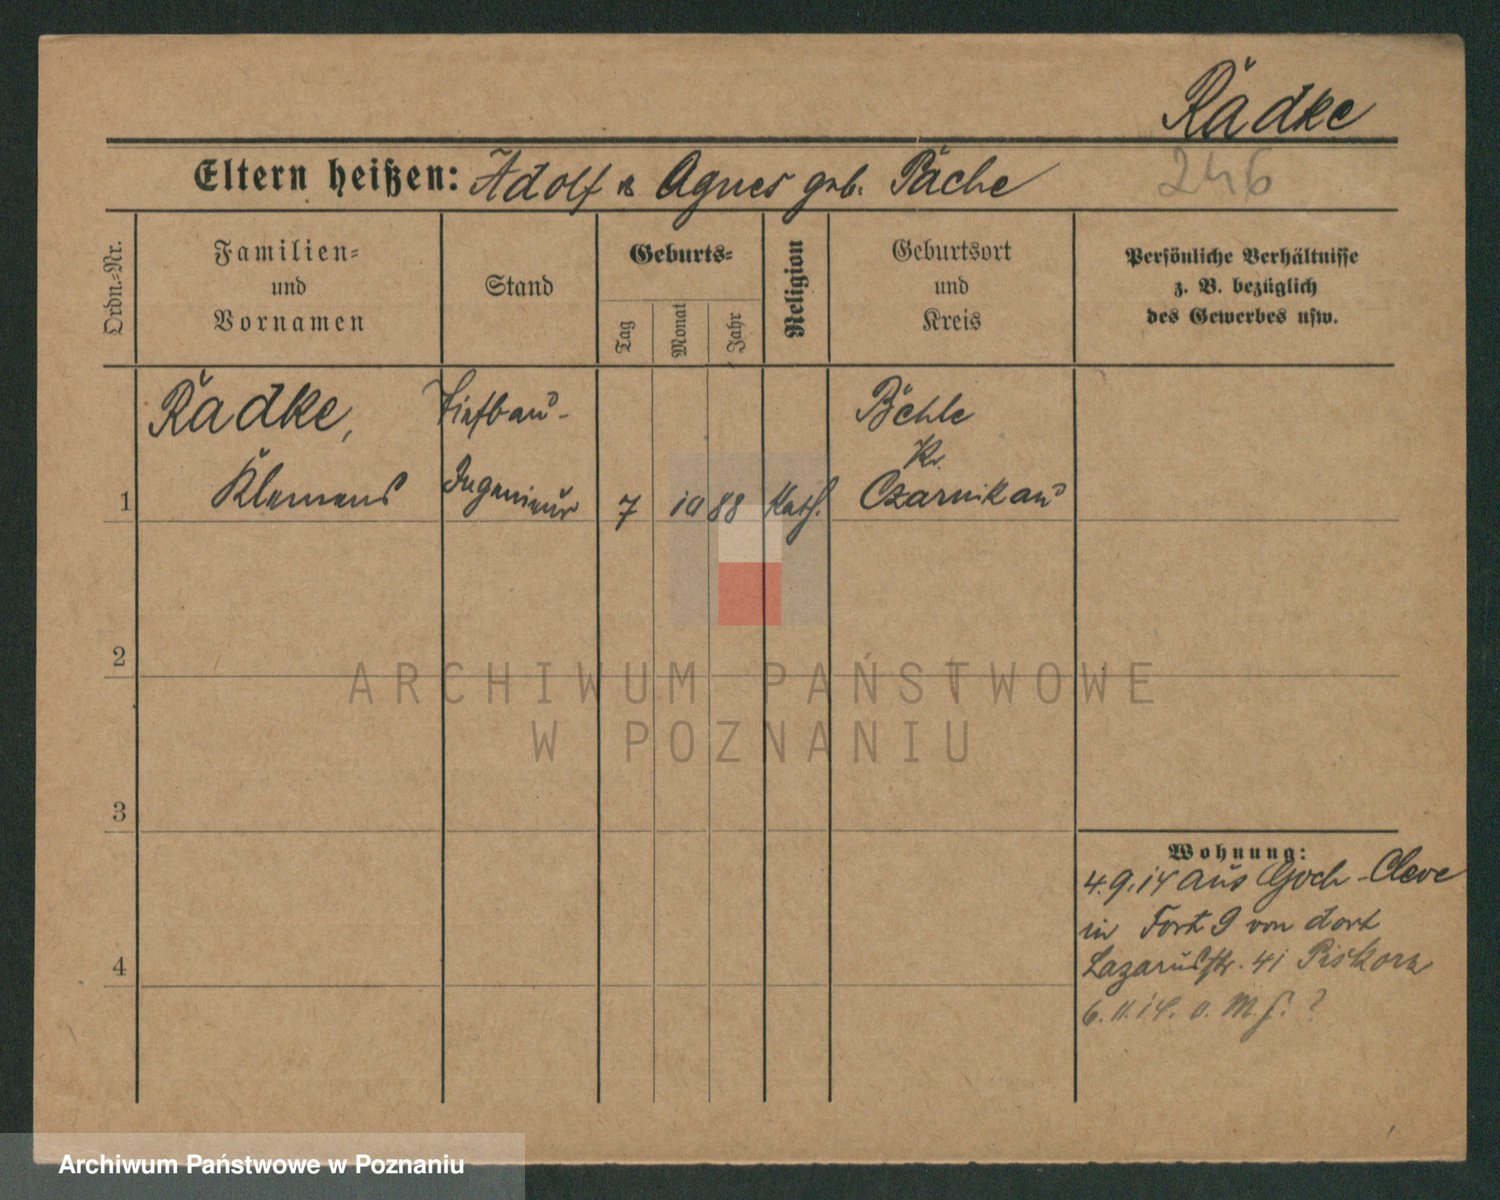 Rädke
246
Eltern heißen: Adolf u Agnes geb. Päche
Ordn.-Nr.
Familien-
und
Vornamen
Stand
Geburts-
Tag
Monat
Jahr
Religion
Geburtsort
und
Kreis
Persönliche Verhältnisse
z. B. bezüglich
des Gewerbes usw.
1
Rädke,
Klemens
Tiefbau-
Ingenieur
7
10
88
Kath.
Behle
Kr.
Czarnikau
2
3
4
Wohnung:
4.9.14 aus Goch-Cleve
in Fort 9 von dort
Lazarusstr. 41 Piskorz
6.11.14. o. M. f. ?
ARCHIWUM PAŃSTWOWE
W POZNANIU
Archiwum Państwowe w Poznaniu